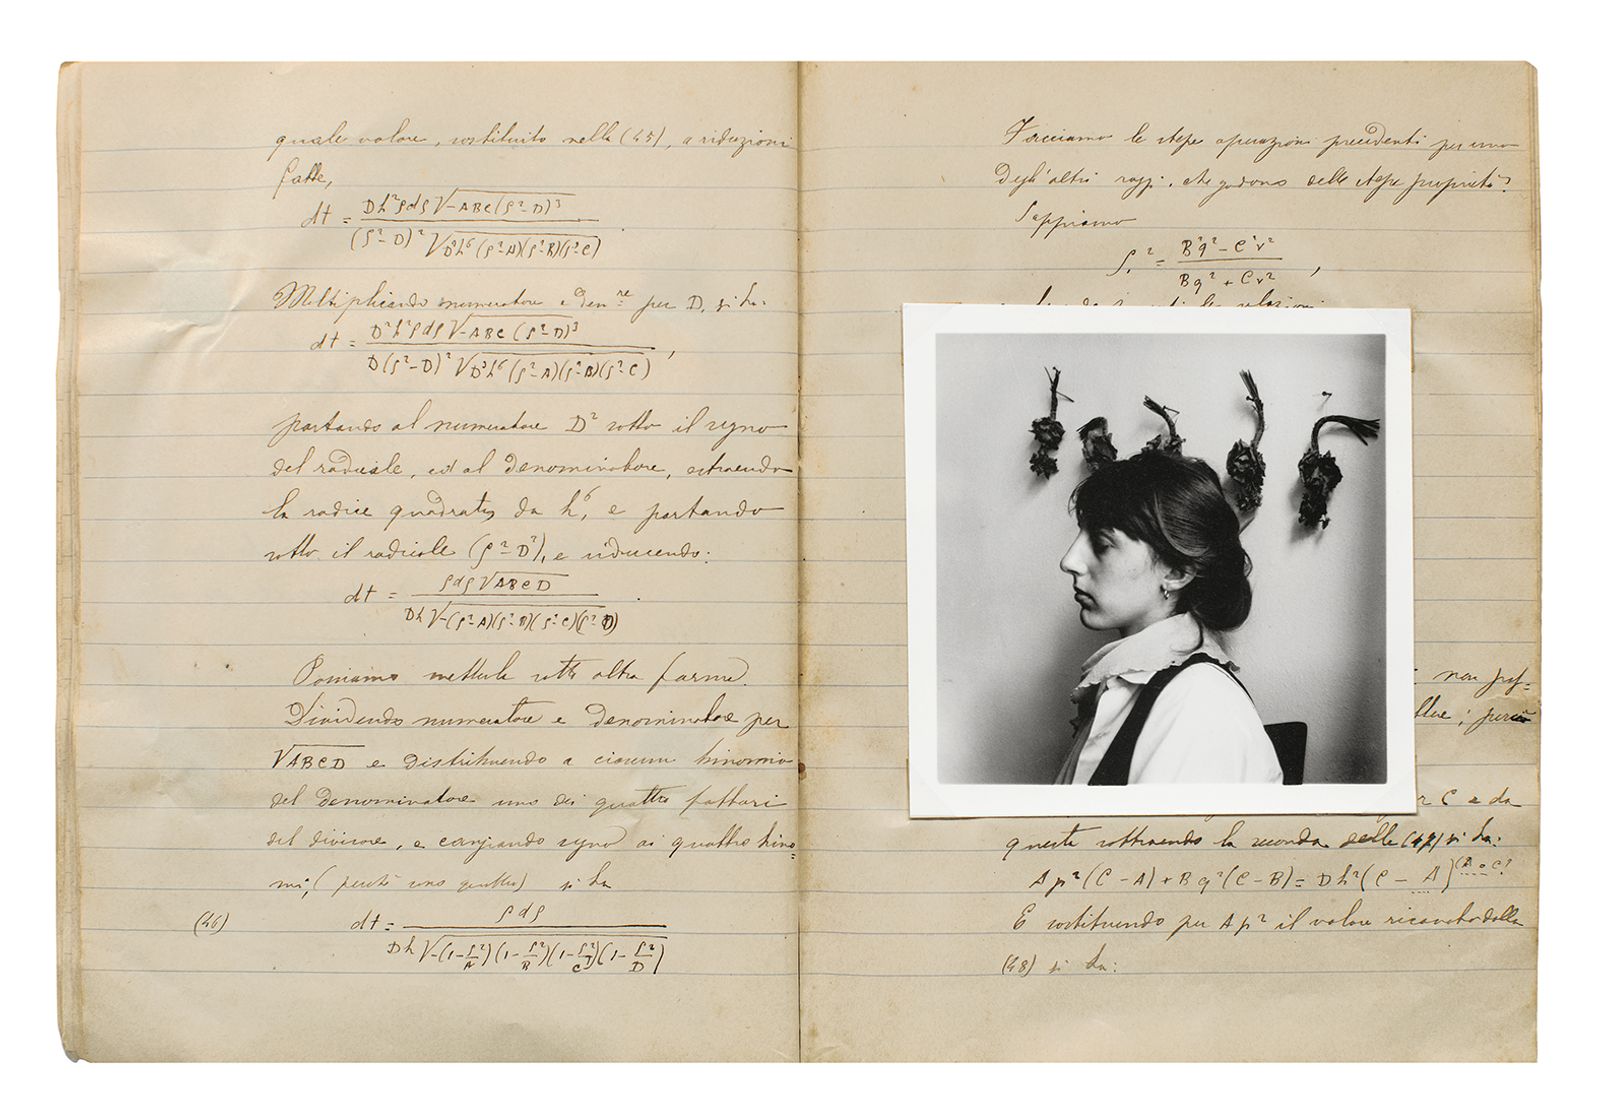 quale valore, sostituito nella (45), a riduzioni
fatte,
dt = Dh²ρdρ√-ABC(ρ²-D)³ / (ρ²-D)²√D³h⁶(ρ²-A)(ρ²-B)(ρ²-C).
Moltiplicando numeratore e den.re per D, si ha:
dt = D²h²ρdρ√-ABC(ρ²-D)³ / D(ρ²-D)²√D³h⁶(ρ²-A)(ρ²-B)(ρ²-C),
portando al numeratore D² sotto il segno
del radicale, ed al denominatore, estraendo
la radice quadrata da h⁶, e portando
sotto il radicale (ρ²-D²), e riducendo:
dt = ρdρ√ABCD / Dh√-(ρ²-A)(ρ²-B)(ρ²-C)(ρ²-D).
Poniamo metterla sotto altra forma.
Dividendo numeratore e denominatore per
√ABCD e distribuendo a ciascun binomio
del denominatore uno dei quattro fattori
del divisore, e cangiando segno ai quattro bino=
mi, (perchè sono quattro) si ha
(46) dt = ρdρ / Dh√-(1-ρ²/A)(1-ρ²/B)(1-ρ²/C)(1-ρ²/D)
Facciamo le stesse operazioni precedenti per uno
degl'altri raggi, che godono delle stesse proprietà.
Sappiamo
ρ₁² = B²q²-C²r² / Bq²+Cr²,
le relazioni
non
però
C e da
questa sottraendo la seconda delle (47) si ha:
Ap²(C-A)+Bq²(C-B)=Dh²(C-A)
E sostituendo per Ap² il valore ricavato dalla
(48) si ha: